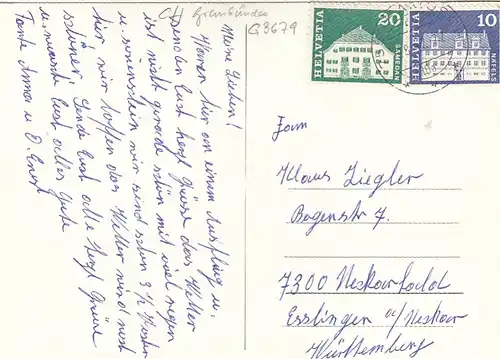 CH Graubünden
G3679
HELVETIA 20
SAMEDAN
HELVETIA 10
Meine Lieben!
Waren hier an einem Ausflug u.
senden Euch herzl. Grüsse das Wetter
ist nicht gerade schön mit viel regen
u. wir sind schon 3 1/2
hier, wir hoffen das Wetter wird noch
schöner. Sende Euch alle herzl. Grüsse
u. Euch alles Gute
Tante Anna u. O. Ernst
Fam
Klaus Ziegler
Bogenstr 7.
7300 Neckarhald
Esslingen a/Neckar
Württemberg